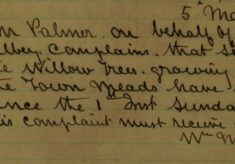 5th Ma
m Palmer on behalf of
lbey. Complains. that se
e Willow Trees. growing
he Town Meads have
nce the 1st Inst Sunda
is complaint must receive
Wm W